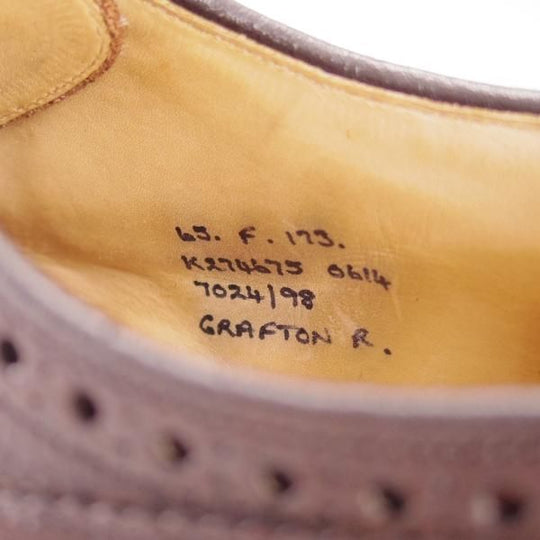 65. F. 173.
K274675 0614
7024/98
GRAFTON R.